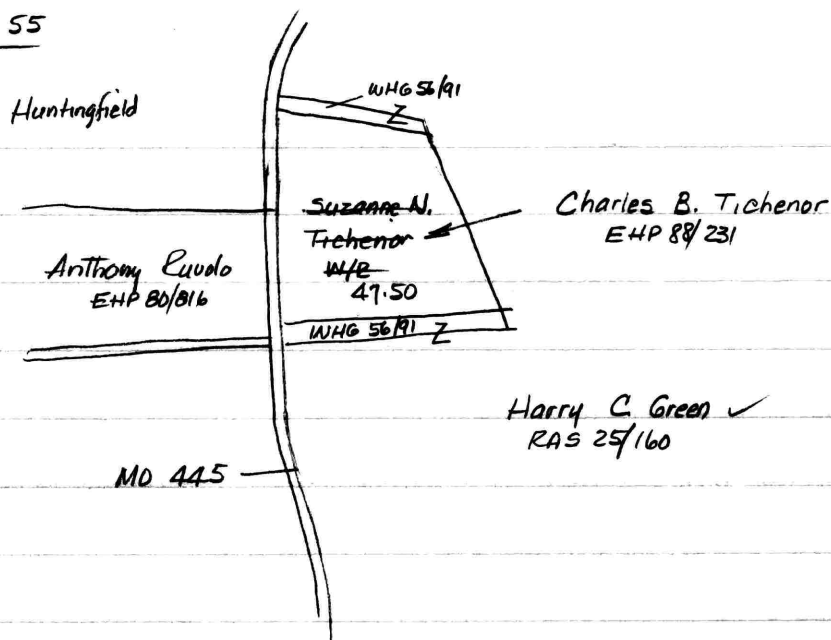 55
WHG 56/91
Z
Huntingfield
Suzanne N.
Tichenor
W/E
47.50
Charles B. Tichenor
EHP 88/231
Anthony Ruvolo
EHP 80/816
WHG 56/91 Z
Harry C Green ✓
RAS 25/160
MD 445